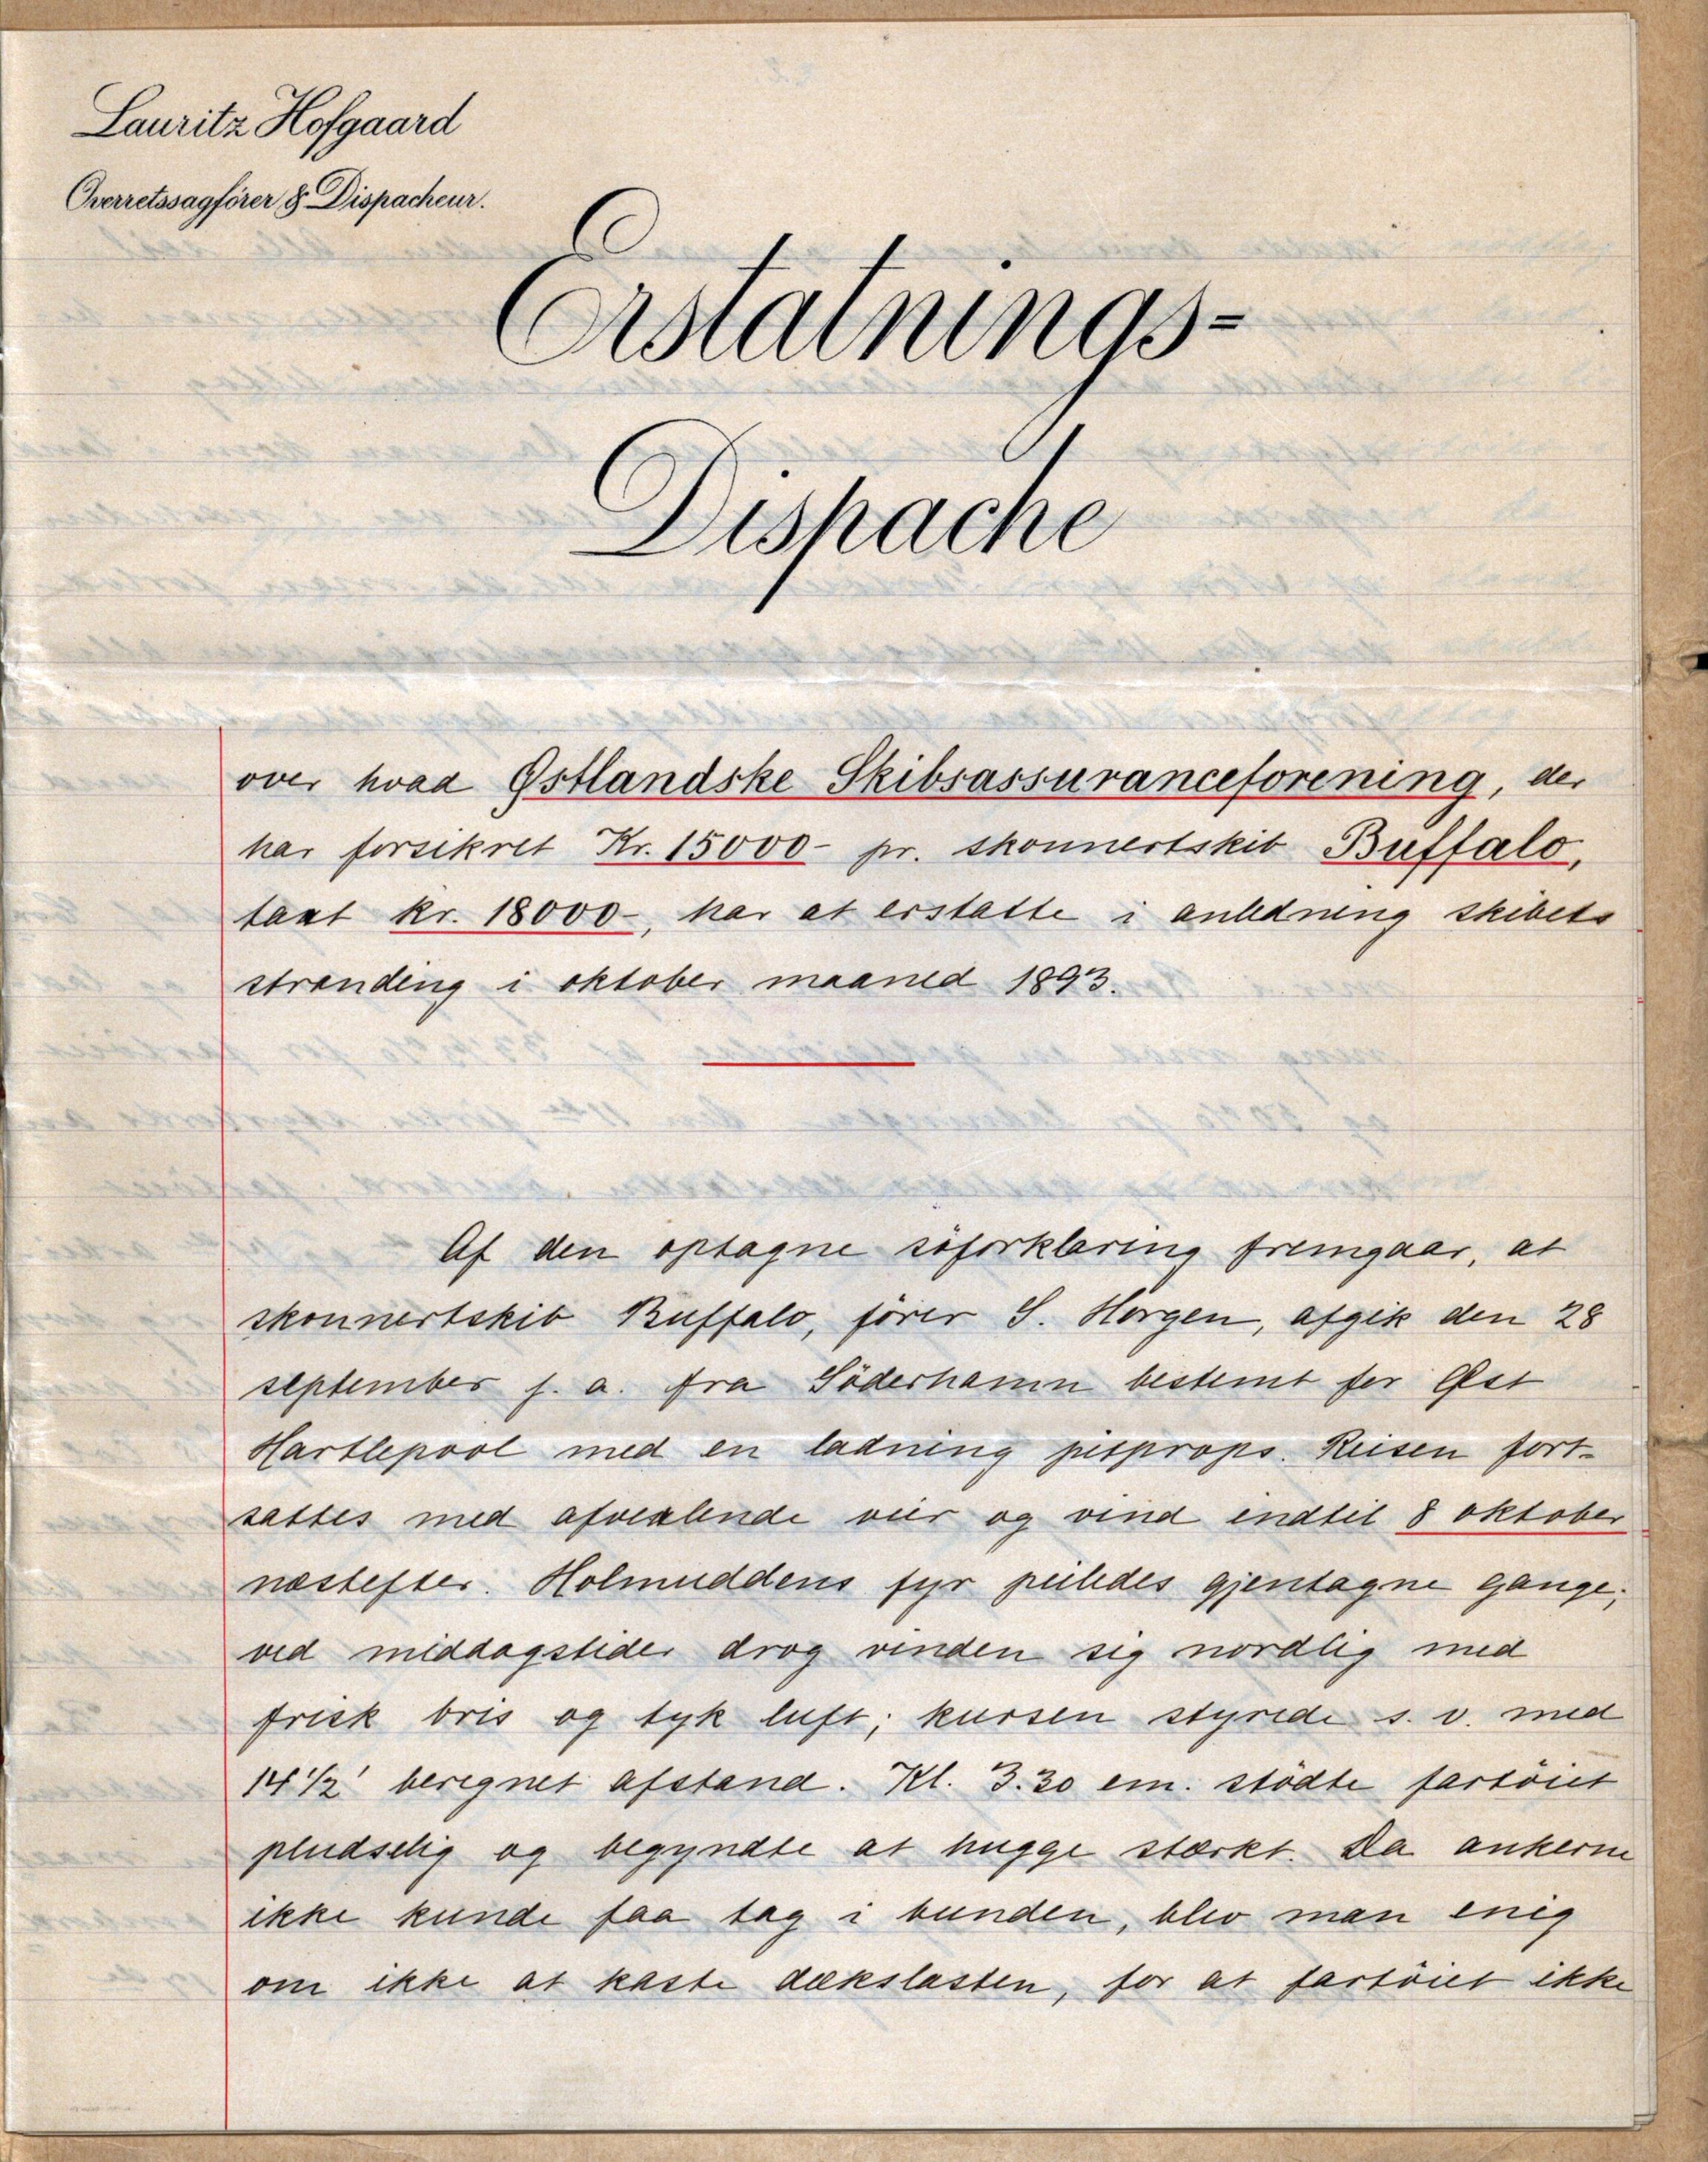 Lauritz Hofgaard
Overretssagfører & Dispacheur.
Erstatnings=
Dispache
over hvad Østlandske Skibsassuranceforening, der
har forsikret Kr. 15000- pr. skonnertskib Buffalo,
taxt kr. 18000-, har at erstatte i anledning skibets
stranding i oktober maaned 1893.
Af den optagne söforklaring fremgaar, at
skonnertskib Buffalo, förer S. Horgen, afgik den 28
september f. a. fra Söderhamn bestemt for Øst
Hartlepool med en ladning pitprops. Reisen fort-
sattes med afvexlende veir og vind indtil 8 oktober
næstefter. Holmuddens fyr peiledes gjentagne gange;
ved middagstider drog vinden sig nordlig med
frisk bris og tyk luft; kursen styrede s. v. med
14 1/2' beregnet afstand. Kl. 3.30 em. stödte fartöiet
pludselig og begyndte at hugge stærkt. Da ankerne
ikke kunde faa tag i bunden, blev man enig
om ikke at kaste dækslasten, for at fartöiet ikke